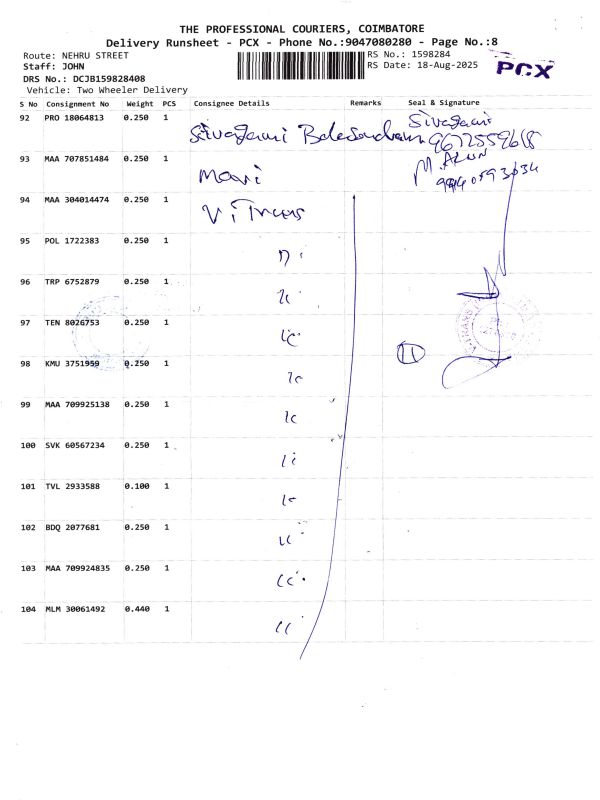 THE PROFESSIONAL COURIERS, COIMBATORE
Delivery Runsheet - PCX - Phone No.:9047080280 - Page No.:8
Route: NEHRU STREET RS No.: 1598284
Staff: JOHN RS Date: 18-Aug-2025
PCX
DRS No.: DCJB159828408
Vehicle: Two Wheeler Delivery
S No Consignment No Weight PCS Consignee Details Remarks Seal & Signature
92 PRO 18064813 0.250 1
93 MAA 707851484 0.250 1 Mari M. ARUN
94 MAA 304014474 0.250 1 ViTrans
95 POL 1722383 0.250 1
96 TRP 6752879 0.250 1
97 TEN 8026753 0.250 1
98 KMU 3751959 0.250 1 11
99 MAA 709925138 0.250 1
100 SVK 60567234 0.250 1
101 TVL 2933588 0.100 1
102 BDQ 2077681 0.250 1
103 MAA 709924835 0.250 1
104 MLM 30061492 0.440 1